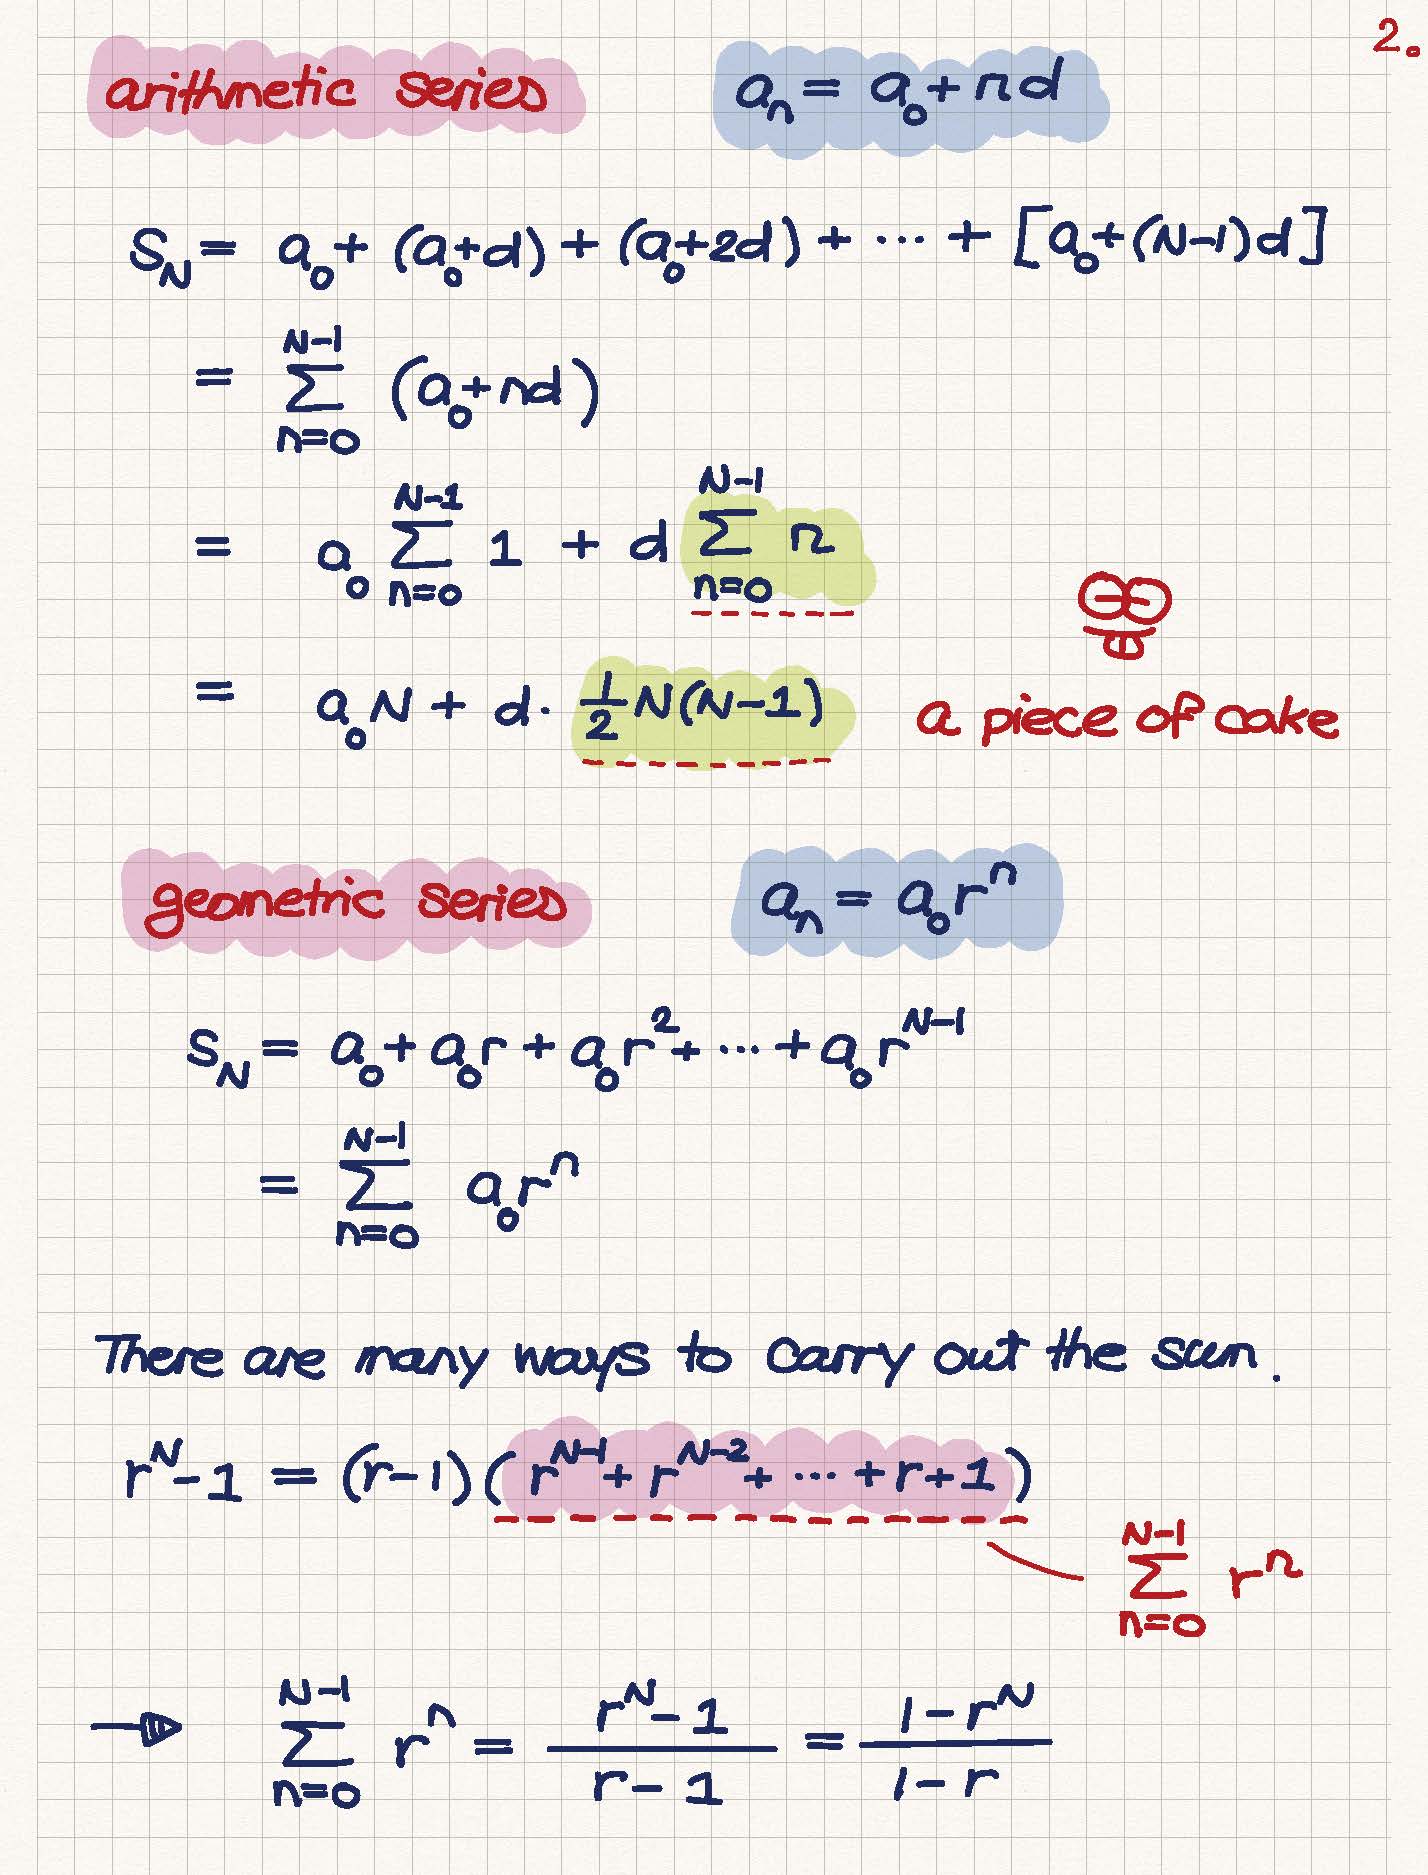 2.
arithmetic series    aₙ = a₀ + nd
S_N = a₀ + (a₀+d) + (a₀+2d) + ⋯ + [a₀+(N-1)d]
= ∑_{n=0}^{N-1} (a₀+nd)
= a₀ ∑_{n=0}^{N-1} 1 + d ∑_{n=0}^{N-1} n
= a₀N + d · 1/2 N(N-1)    a piece of cake
geometric series    aₙ = a₀rⁿ
S_N = a₀ + a₀r + a₀r² + ⋯ + a₀r^{N-1}
= ∑_{n=0}^{N-1} a₀rⁿ
There are many ways to carry out the sum.
r^N - 1 = (r-1)(r^{N-1} + r^{N-2} + ⋯ + r + 1)
∑_{n=0}^{N-1} rⁿ
→ ∑_{n=0}^{N-1} rⁿ = (r^N - 1)/(r - 1) = (1 - r^N)/(1 - r)